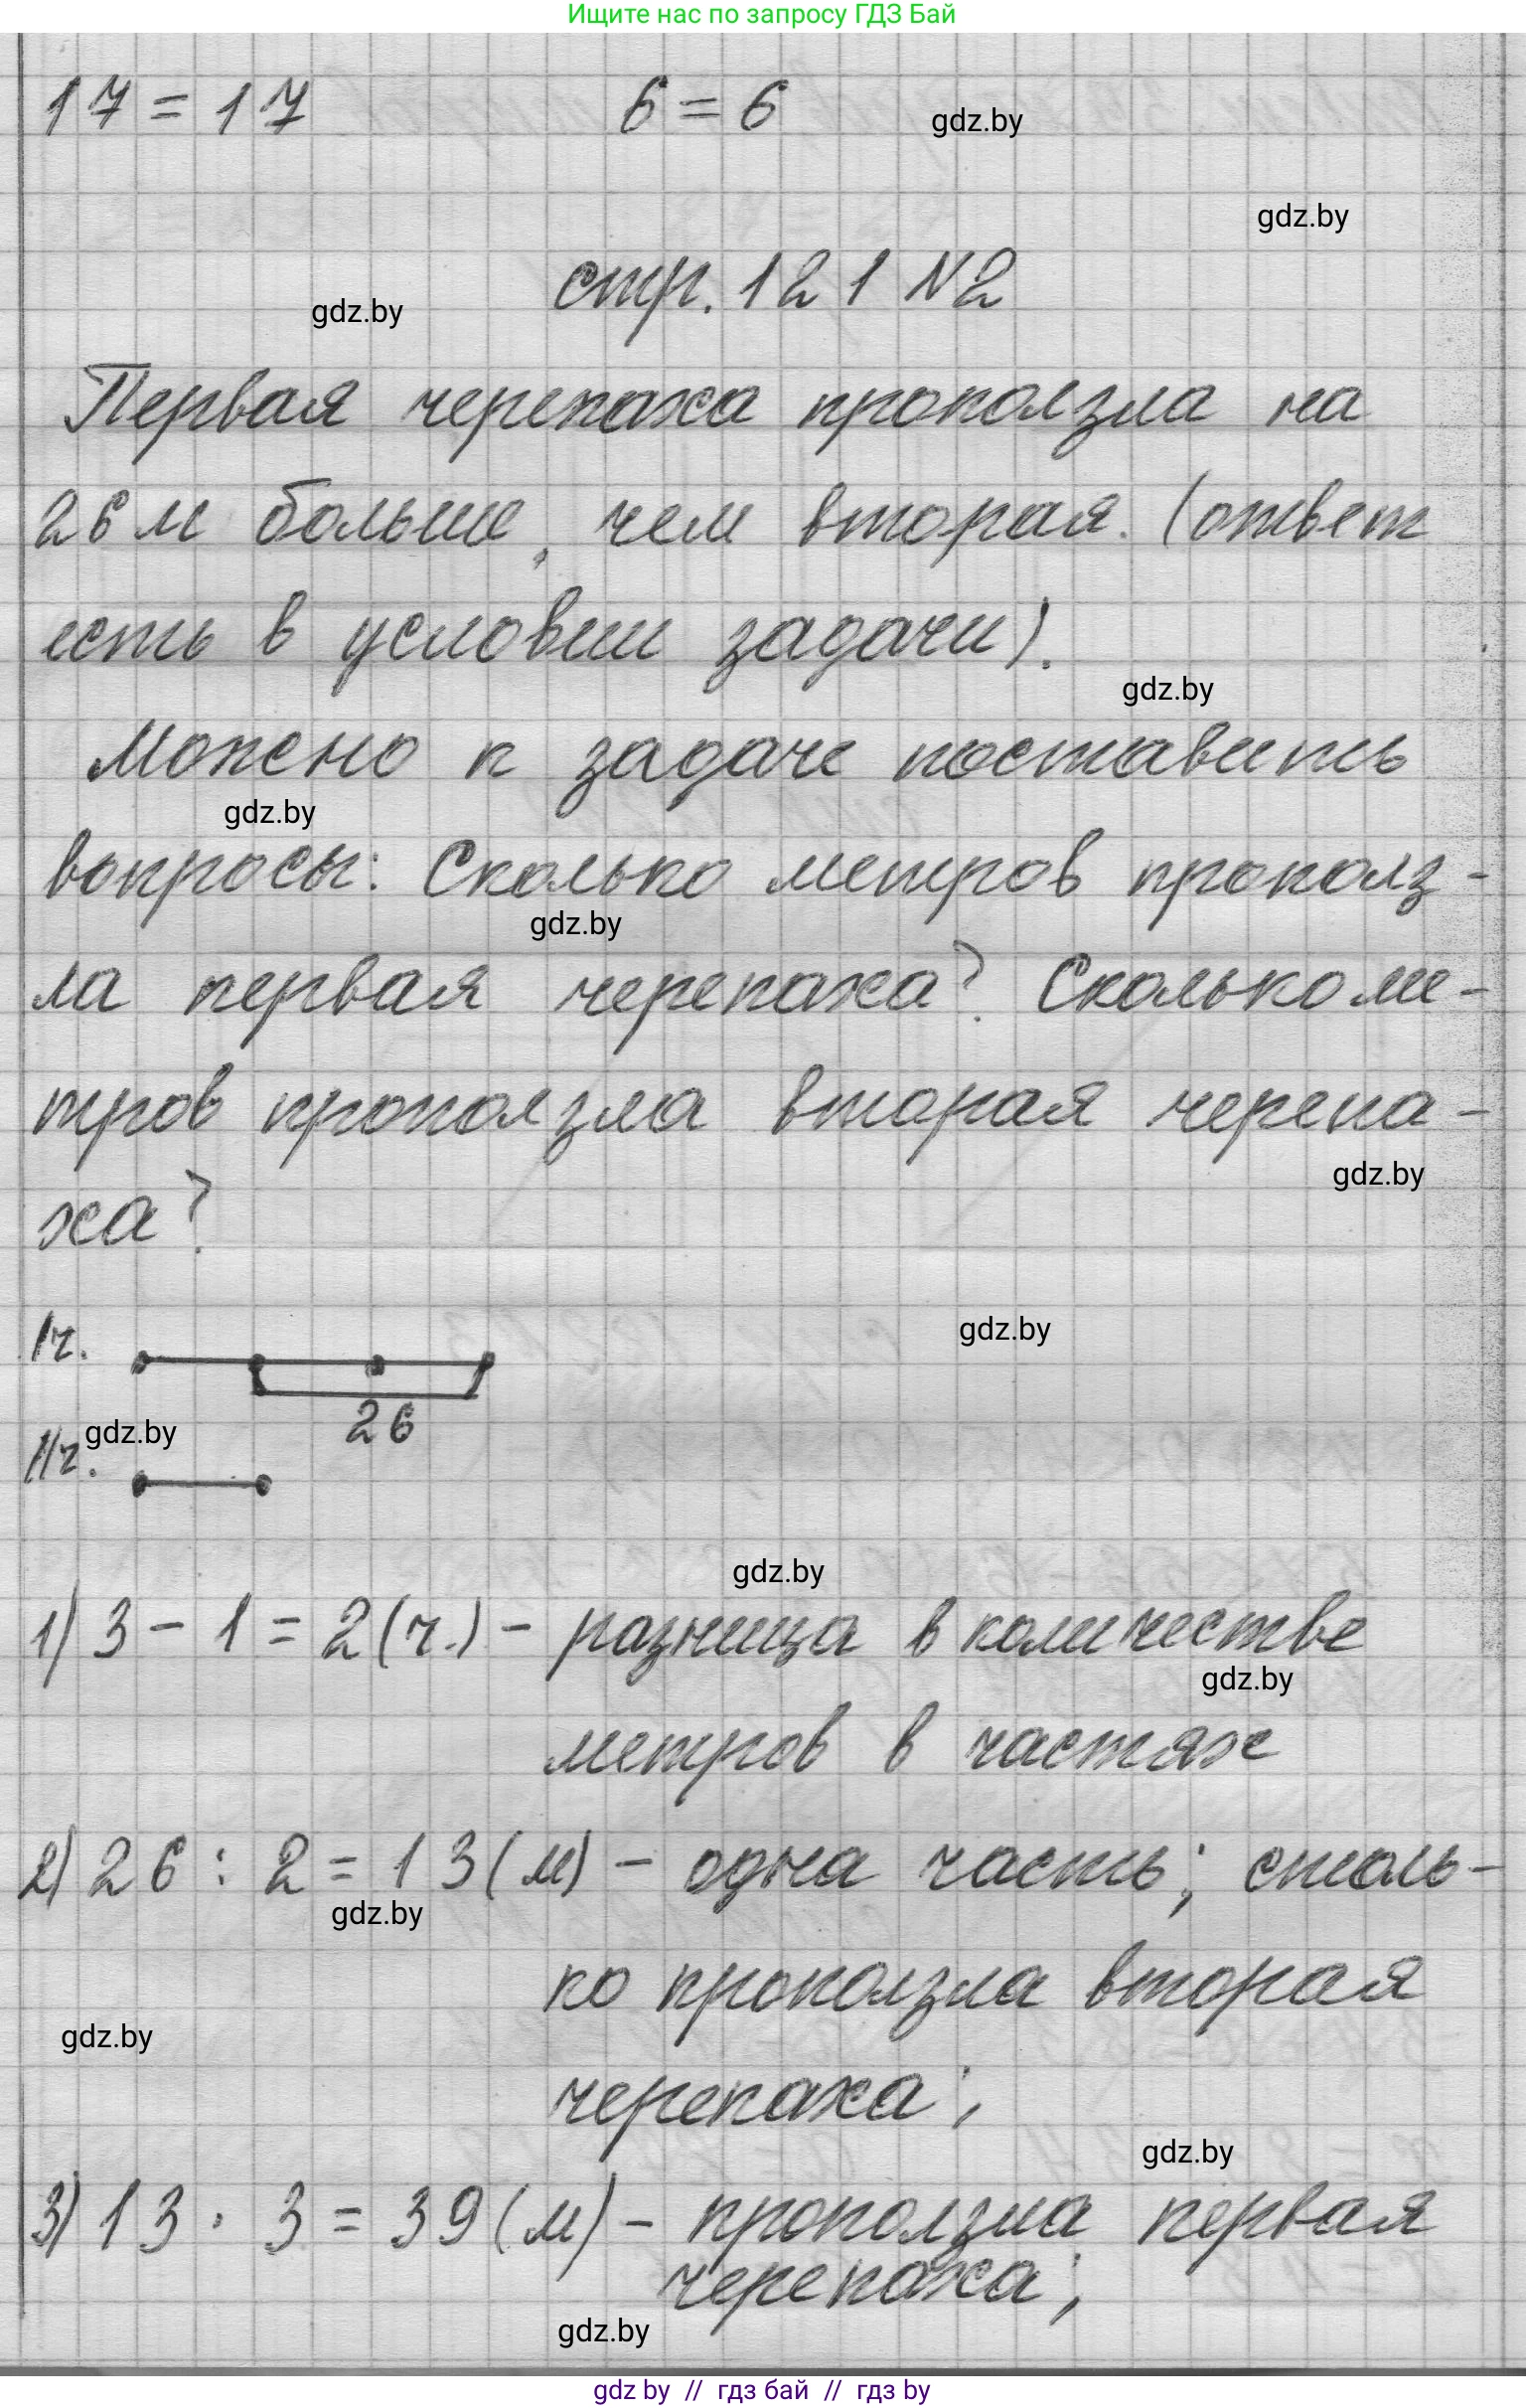 Ищите нас по запросу ГДЗ Бай
17 = 17 6 = 6 gdz.by
gdz.by
стр. 121 №2
gdz.by
Первая черепаха проползла на
26 м больше, чем вторая. (ответ
есть в условии задачи).
gdz.by
Можно к задаче поставить
gdz.by
вопросы: Сколько метров прополз-
gdz.by
ла первая черепаха? Сколько ме-
тров проползла вторая черепа-
gdz.by
ха?
Iч.
gdz.by
26
gdz.by
IIч.
gdz.by
1) 3 - 1 = 2 (ч.) - разница в количестве
gdz.by
метров в частях
2) 26 : 2 = 13 (м) - одна часть; столь-
gdz.by
ко проползла вторая
gdz.by
черепаха;
gdz.by
3) 13 · 3 = 39 (м) - проползла первая
черепаха;
gdz.by
gdz by // гдз бай // гдз by